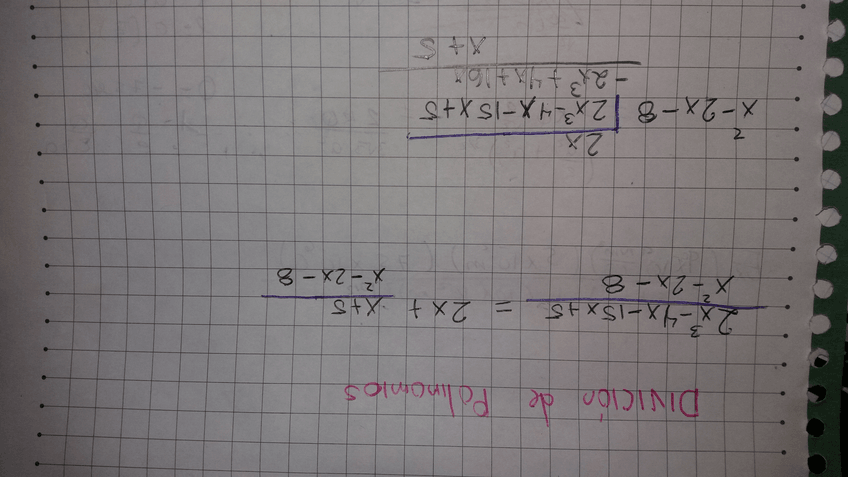 DIVICIÓN de POLINOMIOS
2x³-4x-15x+5 / x²-2x-8 = 2x + x+5 / x²-2x-8
2x
x²-2x-8 | 2x³-4x-15x+5
-2x³+4x+16x
x+5